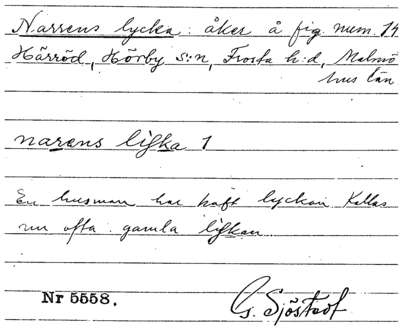 Narrens lycka: åker å fig. num. 14
Härröd, Hörby s:n, Frosta h:d, Malmö
hus län
narens lifka 1
En husman har haft lyckan Kallas
nu ofta gamla lifkan
Nr 5558.
G. Sjöstedt